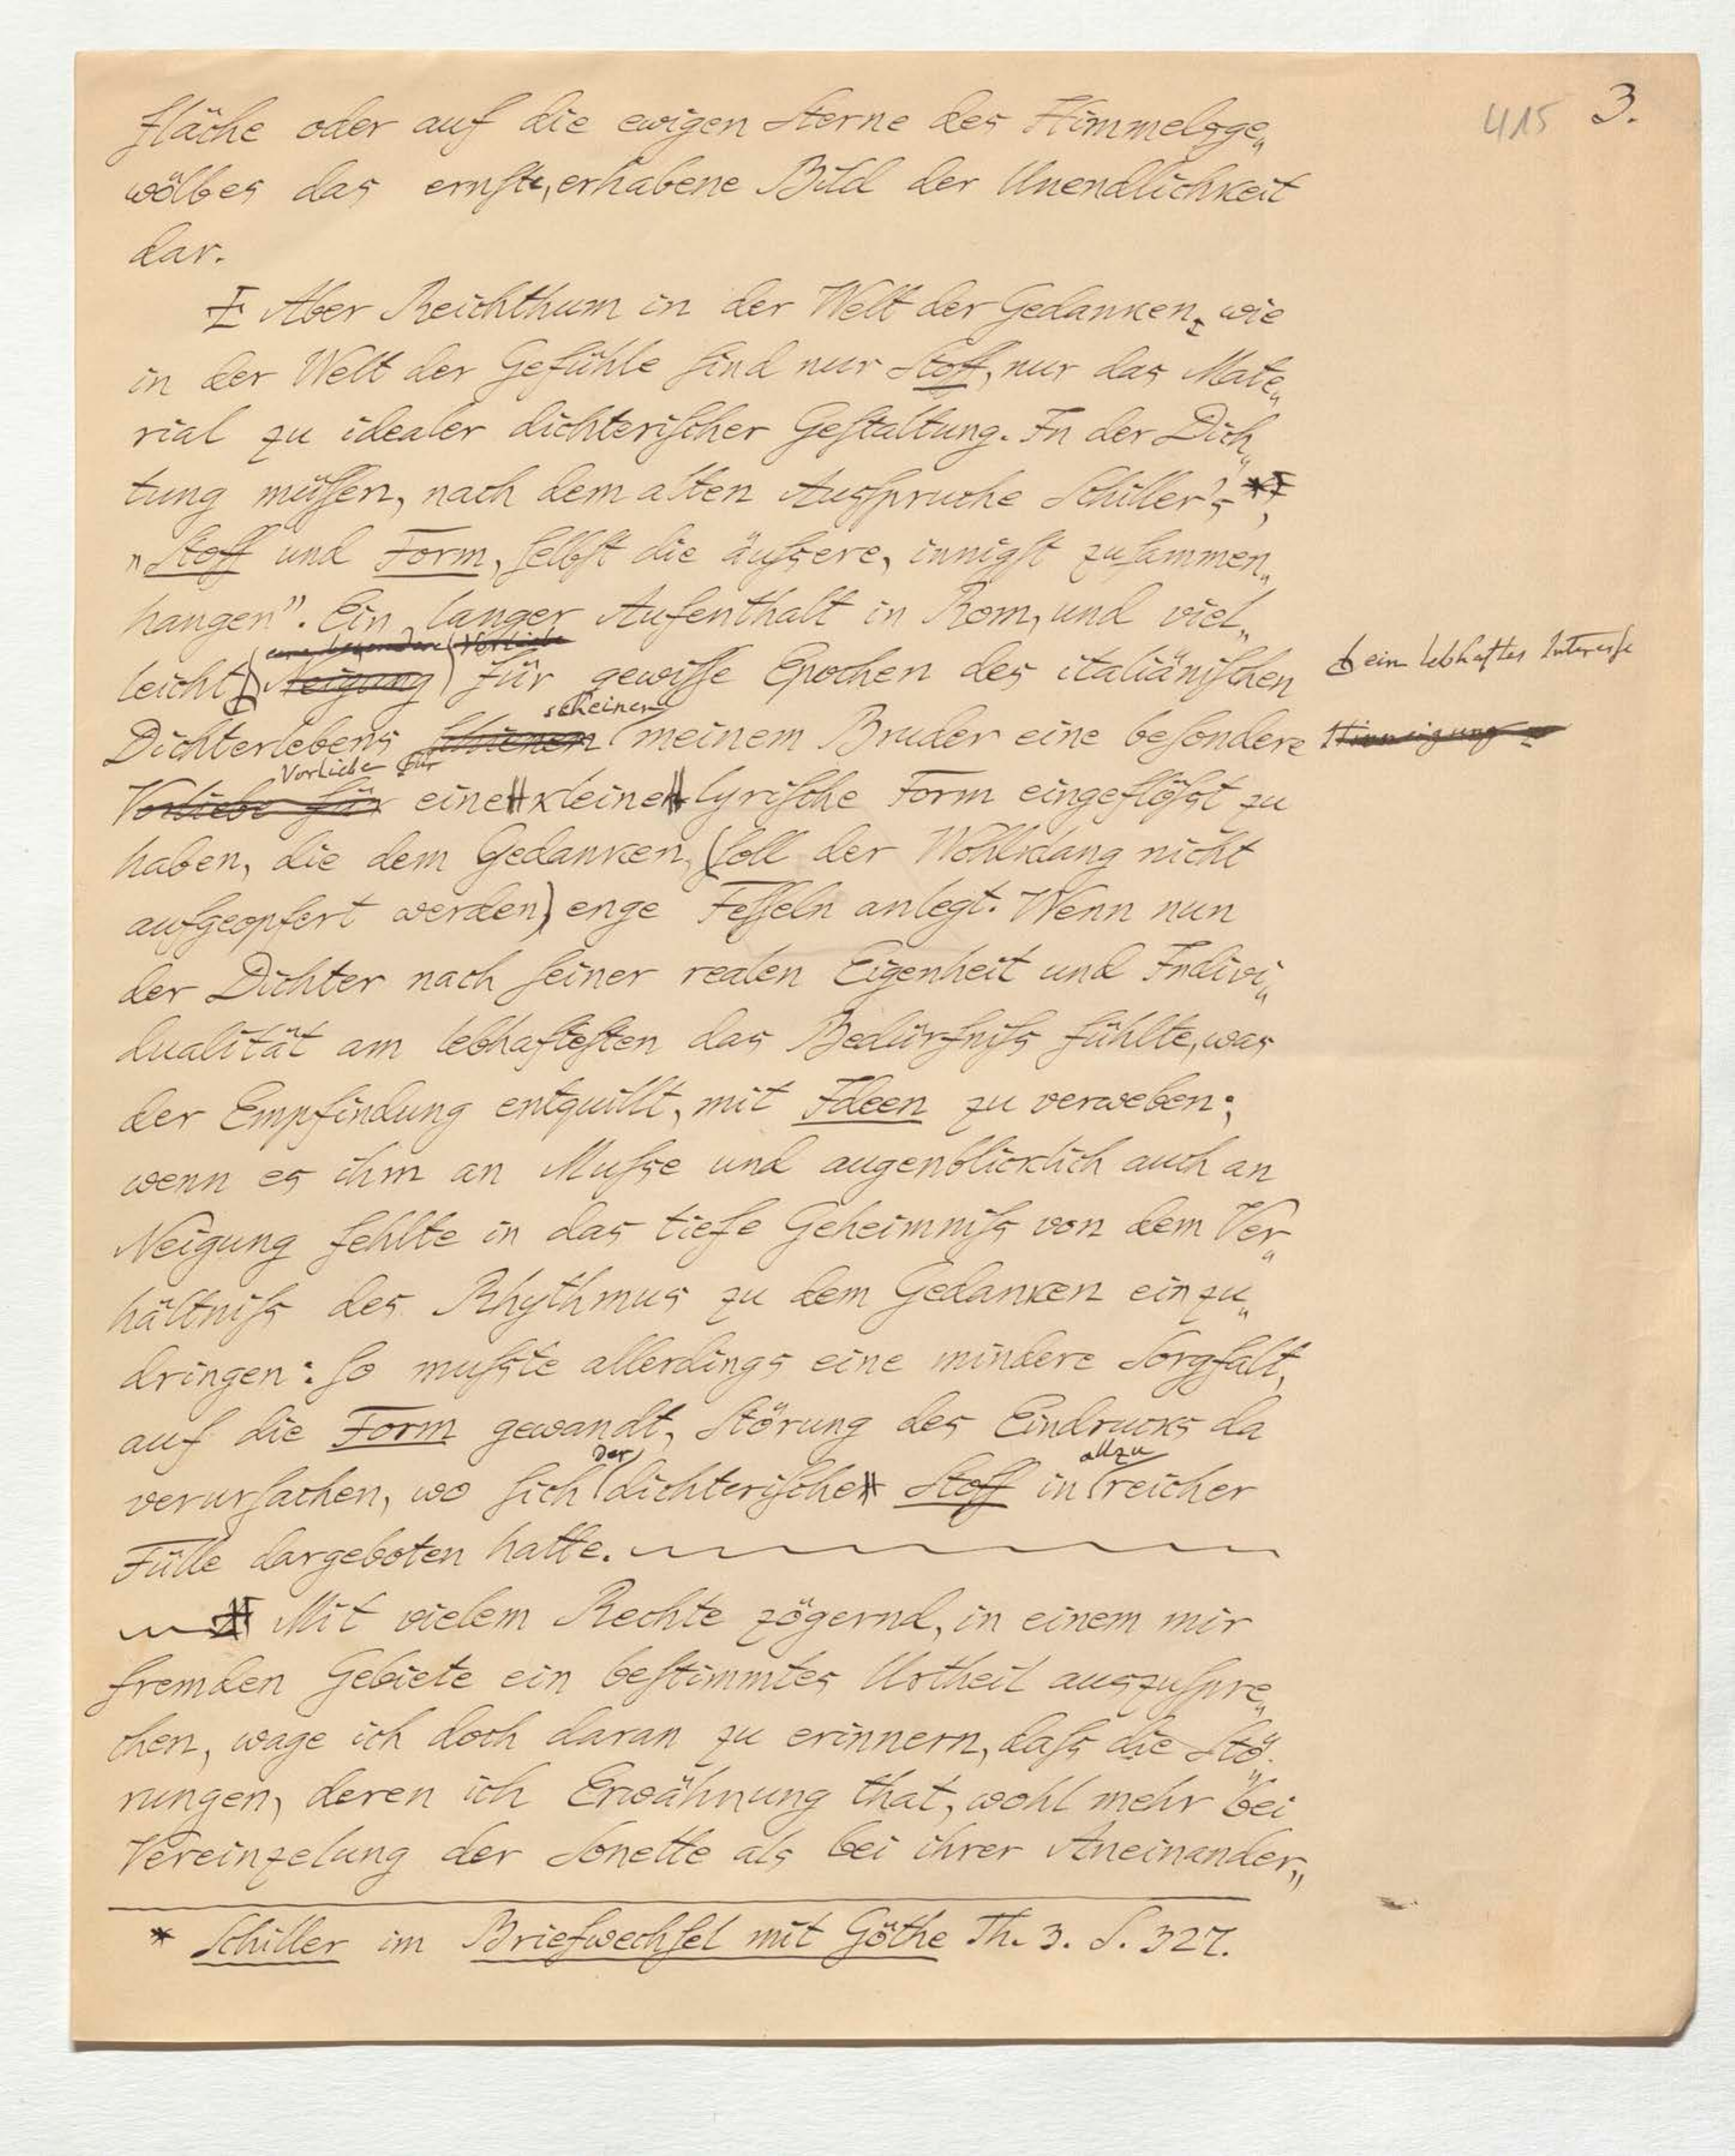 415 3.
fläche oder auf die ewigen Sterne des Himmelsge„
wölbes das ernste, erhabene Bild der Unendlichkeit
dar.
Aber Reichthum in der Welt der Gedanken, wie
in der Welt der Gefühle sind nur Stoff, nur das Mate„
rial zu idealer dichterischer Gestaltung. In der Dich„
tung müssen, nach dem alten Ausspruche Schiller's *,
„Stoff und Form, selbst die äussere, innigst zusammen„
hangen". Ein langer Aufenthalt in Rom, und viel„
eine besondere Vorliebe
leicht Neigung für gewisse Epochen des italiänischen
ein lebhaftes Interesse
scheinen
Dichterlebens schienen meinem Bruder eine besondere
Hinneigung
Vorliebe für
Vorliebe für eine kleine lyrische Form eingeflösst zu
haben, die dem Gedanken, (soll der Wohlklang nicht
aufgeopfert werden) enge Fesseln anlegt. Wenn nun
der Dichter nach seiner realen Eigenheit und Indivi„
dualität am lebhaftesten das Bedürfniss fühlte, was
der Empfindung entquillt, mit Ideen zu verweben;
wenn es ihm an Musse und augenblicklich auch an
Neigung fehlte in das tiefe Geheimniss von dem Ver„
hältniss des Rhythmus zu dem Gedanken einzu„
dringen: so musste allerdings eine mindere Sorgfalt,
auf die Form gewandt, Störung des Eindrucks da
der allzu
verursachen, wo sich dichterischer Stoff in reicher
Fülle dargeboten hatte.
Mit vielem Rechte zögernd, in einem mir
fremden Gebiete ein bestimmtes Urtheil auszuspre„
chen, wage ich doch daran zu erinnern, dass die Stö„
rungen, deren ich Erwähnung that, wohl mehr bei
Vereinzelung der Sonette als bei ihrer Aneinander„
* Schiller im Briefwechsel mit Göthe Th. 3. S. 327.